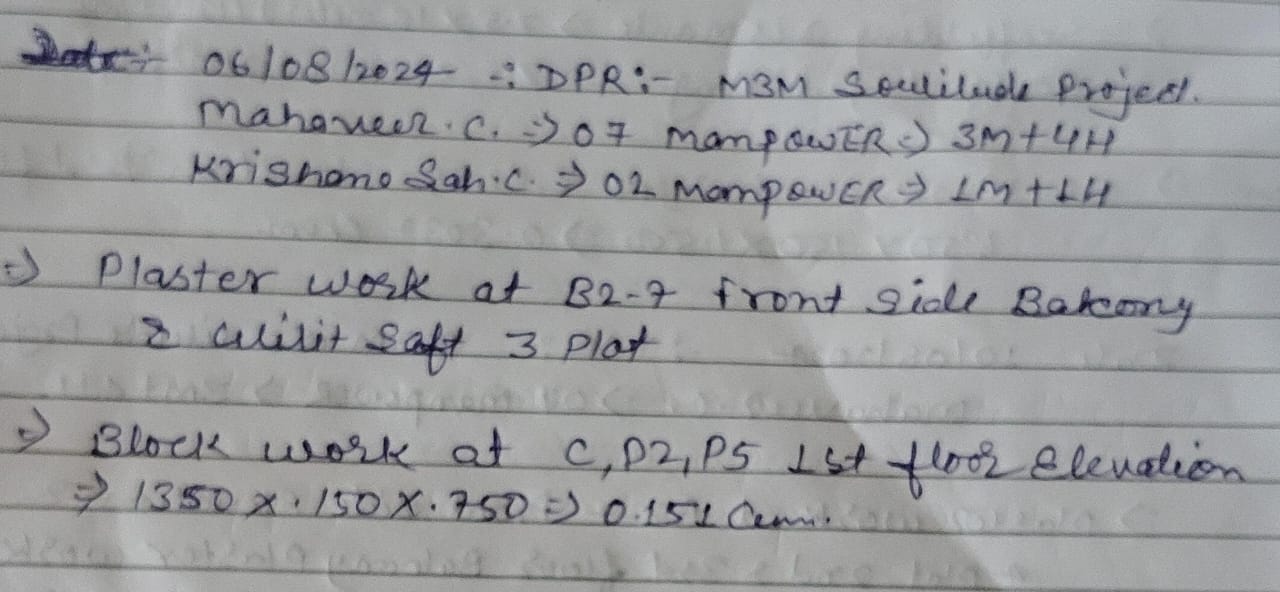 Date:- 06/08/2024 -: DPR:- M3M Soulilude Project.
Mahaveer.C. => 07 manpowER => 3M+4H
Krishano Sah.C. => 02 MampowER => 1M+1H
=> Plaster work at B2-7 front side Balcony
& Saft 3 Plot
=> Block work at C,D2,P5 1st floor Elevation
=> 1350 X .150 X .750 => 0.151 Cum.